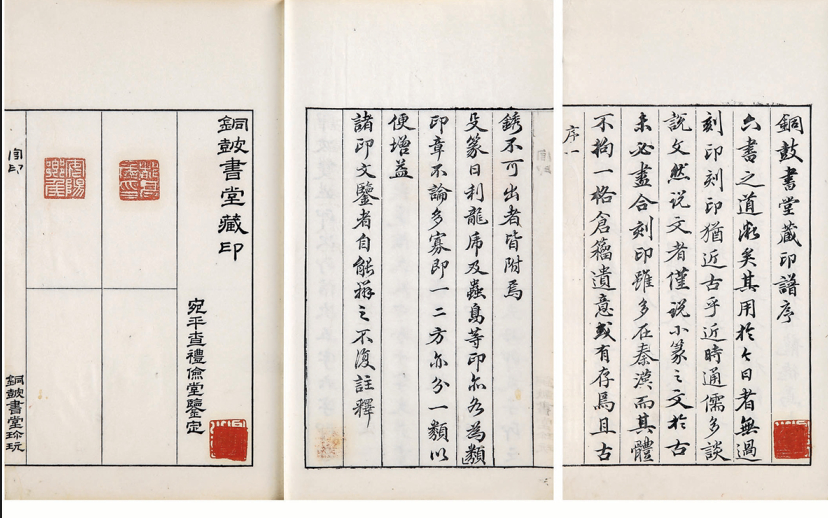 銅鼓書堂藏印譜序
六書之道微矣其用於今日者無過
刻印刻印猶近古乎近時通儒多談
說文然說文者僅說小篆之文於古
未必盡合刻印雖多在秦漢而其體
不拘一格倉籀遺意或有存焉且古
序一
銹不可出者皆附焉
殳篆日利龍虎及蟲鳥等印亦各為類
印章不論多寡即一二方亦分一類以
便增益
諸印文鑒者自能辨之不復註釋
銅鼓書堂藏印
宛平查禮儉堂鑒定
銅鼓書堂珍玩